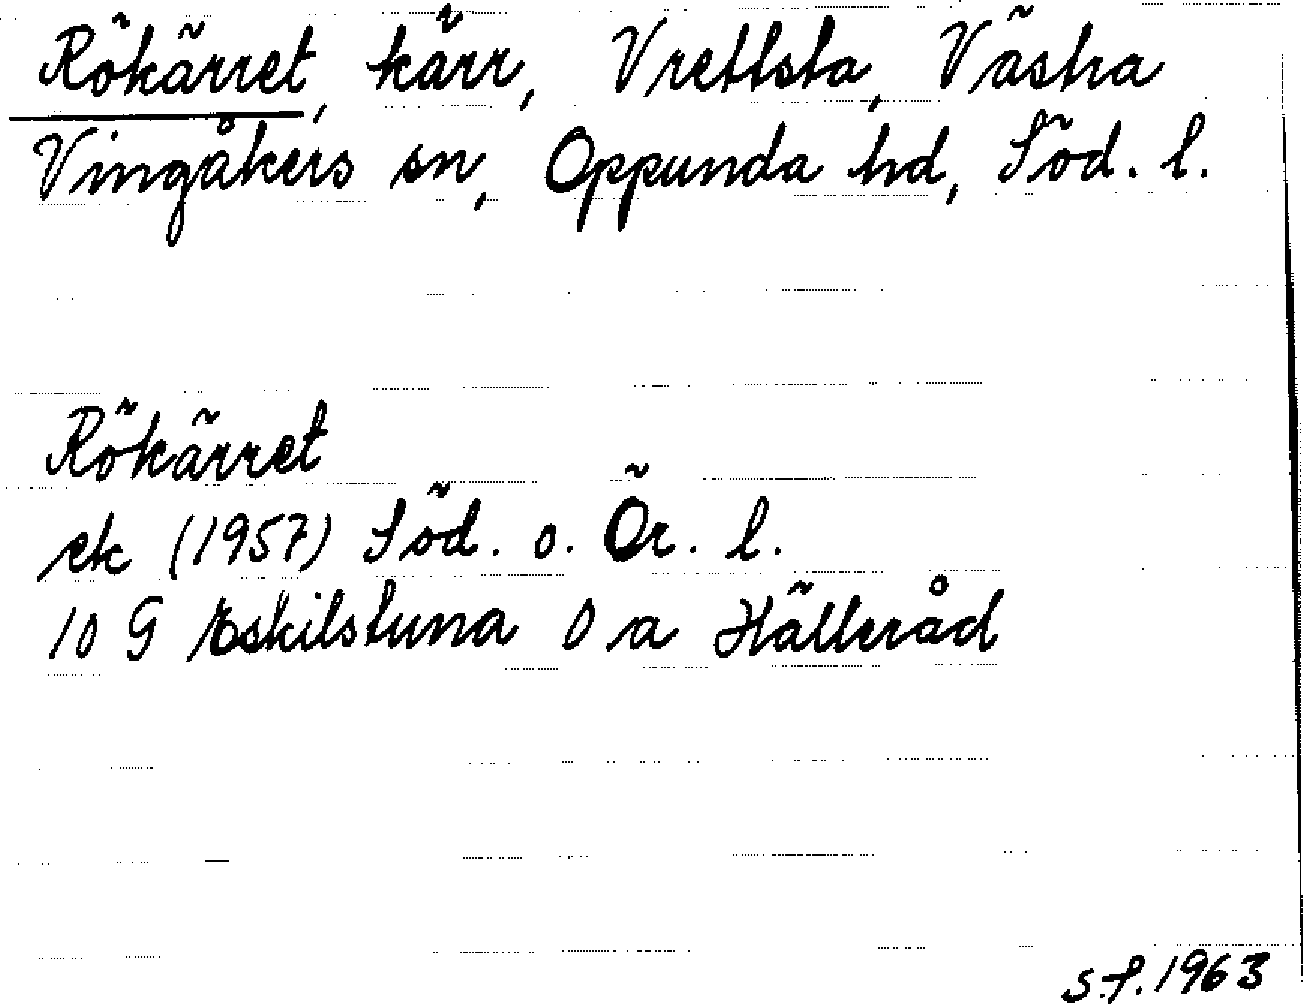 Rökärret, kärr, Vrettsta, Västra
Vingåkers sn, Oppunda hd, Söd. l.
Rökärret
ek (1957) Söd. o. Ör. l.
10 G Eskilstuna O a Hälleråd
s.f. 1963